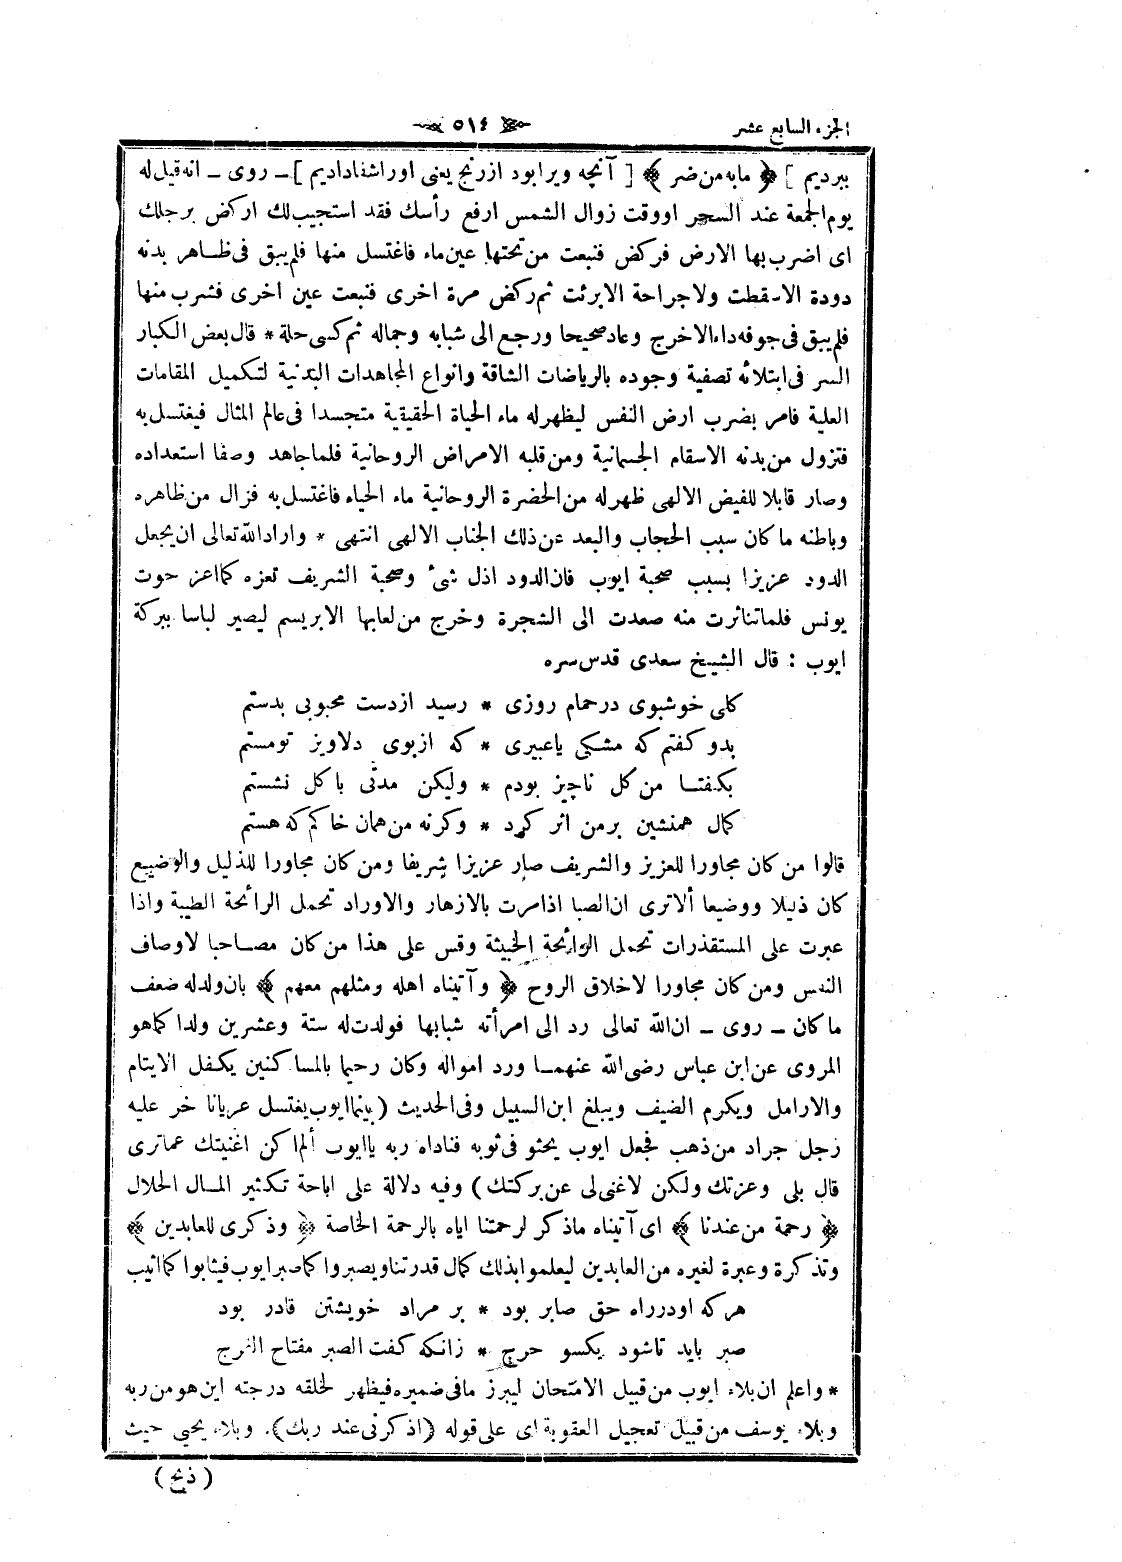 الجزء السابع عشر
٥١٤
ببرديم ] ﴿ مابه من ضر ﴾ [ آنچه ويرا بود ازرنج يعنى اورا شفاداديم ] ـ روى ـ انه قيل له
يوم الجمعة عند السحر اووقت زوال الشمس ارفع رأسك فقد استجيب لك اركض برجلك
اى اضرب بها الارض فركض فنبعت من تحتها عين ماء فاغتسل منها فلم يبق فى ظاهر بدنه
دودة الاسقطت ولاجراحة الابرئت ثم ركض مرة اخرى فنبعت عين اخرى فشرب منها
فلم يبق فى جوفه داء الاخرج وعاد صحيحا ورجع الى شبابه وجماله ثم كسى حلة * قال بعض الكبار
السر فى ابتلائه تصفية وجوده بالرياضات الشاقة وانواع المجاهدات البدنية لتكميل المقامات
العلية فامر بضرب ارض النفس ليظهر له ماء الحياة الحقيقية متجسدا فى عالم المثال فيغتسل به
فتزول من بدنه الاسقام الجسمانية ومن قلبه الامراض الروحانية فلما جاهد وصفا استعداده
وصار قابلا للفيض الالهى ظهر له من الحضرة الروحانية ماء الحياء فاغتسل به فزال من ظاهره
وباطنه ما كان سبب الحجاب والبعد عن ذلك الجناب الالهى انتهى * واراد الله تعالى ان يجعل
الدود عزيزا بسبب صحبة ايوب فان الدود اذل شئ وصحبة الشريف تعزه كما اعز حوت
يونس فلما تناثرت منه صعدت الى الشجرة وخرج من لعابها الابريسم ليصير لباسا ببركة
ايوب : قال الشيخ سعدى قدس سره
كلى خوشبوى درحمام روزى * رسيد ازدست محبوبى بدستم
بدو كفتم كه مشكى ياعبيرى * كه ازبوى دلاويز تومستم
بكفتا من كل ناچيز بودم * وليكن مدتى با كل نشستم
كمال همنشين برمن اثر كرد * وكرنه من همان خاكم كه هستم
قالوا من كان مجاورا للعزيز والشريف صار عزيزا شريفا ومن كان مجاورا للذليل والوضيع
كان ذليلا ووضيعا ألاترى ان الصبا اذا مرت بالازهار والاوراد تحمل الرائحة الطيبة واذا
عبرت على المستقذرات تحمل الرائحة الخبيثة وقس على هذا من كان مصاحبا لاوصاف
النفس ومن كان مجاورا لاخلاق الروح ﴿ وآتيناه اهله ومثلهم معهم ﴾ بان ولد له ضعف
ما كان ـ روى ـ ان الله تعالى رد الى امرأته شبابها فولدت له ستة وعشرين ولدا كماهو
المروى عن ابن عباس رضى الله عنهما ورد امواله وكان رحيما بالمساكنين يكفل الايتام
والارامل ويكرم الضيف ويبلغ ابن السبيل وفى الحديث (بينما ايوب يغتسل عريانا خر عليه
رجل جراد من ذهب فجعل ايوب يحثو فى ثوبه فناداه ربه يا ايوب ألم اكن اغنيتك عماترى
قال بلى وعزتك ولكن لاغنى لى عن بركتك) وفيه دلالة على اباحة تكثير المال الحلال
﴿ رحمة من عندنا ﴾ اى آتيناه ماذكر لرحمتنا اياه بالرحمة الخاصة ﴿ وذكرى للعابدين ﴾
وتذكرة وعبرة لغيره من العابدين ليعلموا بذلك كمال قدرتنا ويصبروا كما صبر ايوب فيثابوا كما اثيب
هركه اودرراه حق صابر بود * بر مراد خويشتن قادر بود
صبر بايد تاشود يكسو حرج * زانكه كفت الصبر مفتاح الفرج
* واعلم ان بلاء ايوب من قبيل الامتحان ليبرز مافى ضميره فيظهر لخلقه درجته اين هو من ربه
وبلاء يوسف من قبيل تعجيل العقوبة اى على قوله (اذكرنى عند ربك). وبلاء يحيى حيث
( ذبح )